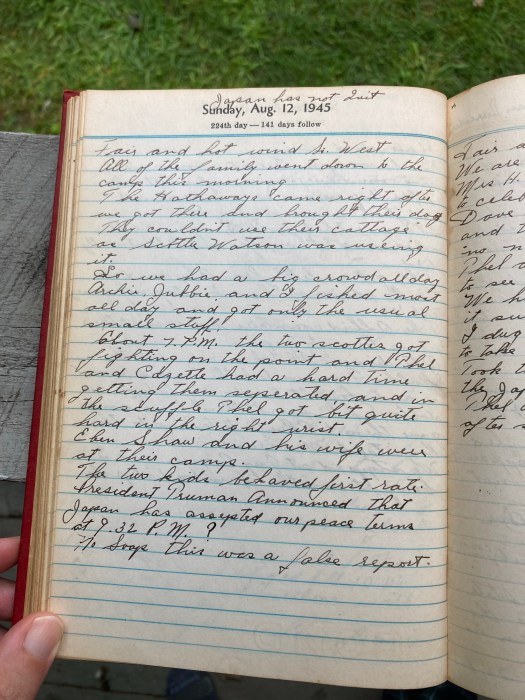 Japan has not Quit
Sunday, Aug. 12, 1945
224th day—141 days follow
Fair and hot wind So. West
All of the family went down to the
camp this morning
The Hathaways came right after
we got there and brought their dog
They couldn't use their cottage
as Scottie Watson was useing
it.
So we had a big crowd all day
Archie, Jubbie, and I fished most
all day and got only the usual
small stuff.
About 7 P.M. the two scotties got
fighting on the point and Phel
and Edzette had a hard time
getting them seperated, and in
the scuffle Phel got bit quite
hard in the right wrist.
Eben Shaw and his wife were
at their camp.
The two kids behaved first rate.
President Truman Announced that
Japan has assepted our peace terms
at 9.32 P.M. ?
No Soap this was a false report.
Fair a
We are
Mrs H.
to celeb
Dave
and t
no n
Phel a
to see
We h
it su
I dug
to take
Took t
the Jap
Phel
after s